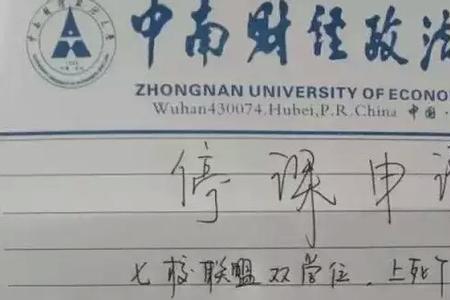 中南财经政法
ZHONGNAN UNIVERSITY OF ECONO
Wuhan430074.Hubei,P.R.China 中国·
停课申
七校联盟双学位,上死